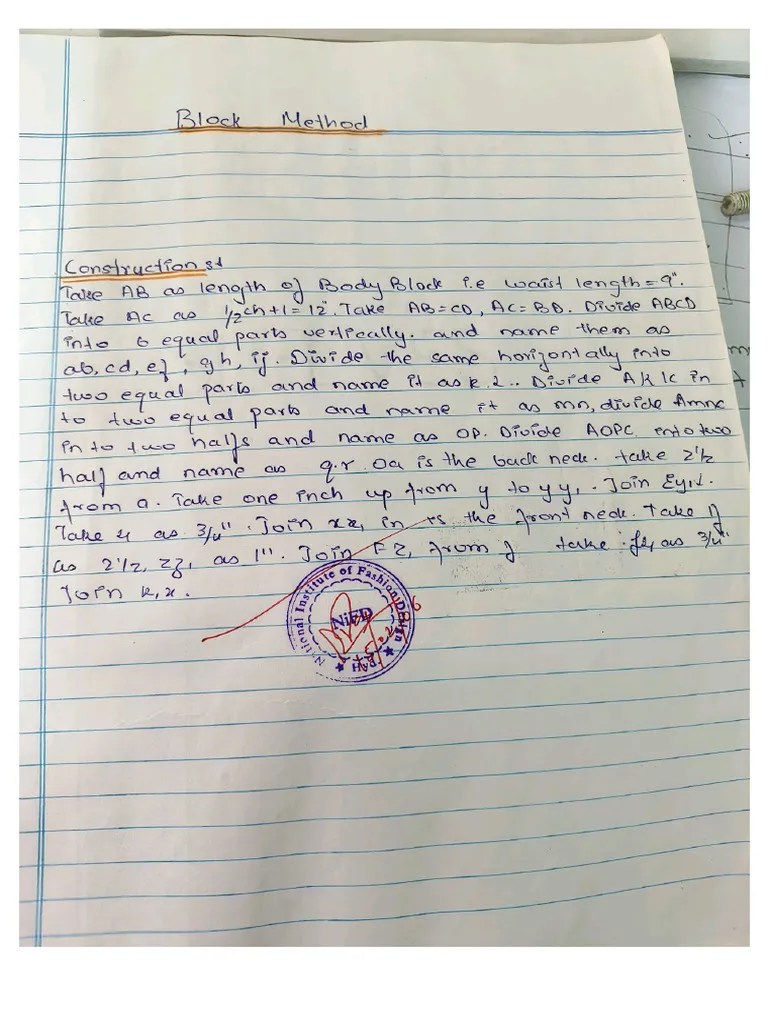 Block Method
Construction st
Take AB as length of Body Block i.e waist length = 9".
Take AC as 1/2 ch + 1 = 12". Take AB = CD, AC = BD. Divide ABCD
into 6 equal parts vertically. and name them as
ab, cd, ef, gh, ij. Divide the same horizontally into
two equal parts and name it as k.l.. Divide AKlC in
to two equal parts and name it as mn, divide Amnc
in to two halfs and name as OP. Divide AOPC into two
half and name as q.r. Oa is the back neck. take 2 1/2
from a. Take one inch up from y to yy1. Join
Take as 3/4". Join xx1 in rs the front neck. Take
as 2 1/2, zz1 as 1". Join FZ1 from f take ff1 as 3/4"
Join k,x.
National Institute of Fashion Design
NiFD